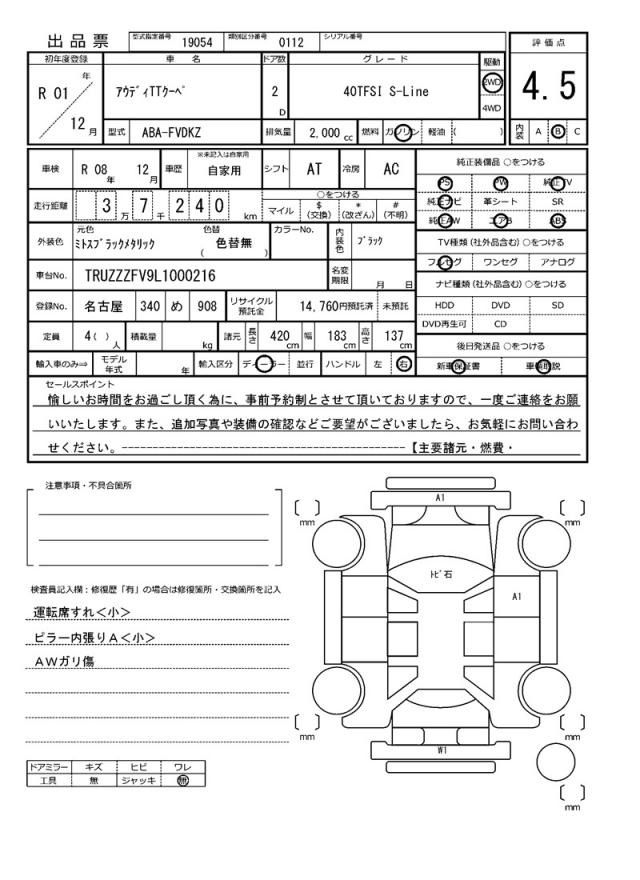 出品票 型式指定番号 19054 類別区分番号 0112 シリアル番号
評価点
4.5
内装 A B C
初年度登録 車名 ドア数 グレード 駆動
R 01 年 12 月
ｱｳﾃﾞｨTTｸｰﾍﾟ 2 D 40TFSI S-Line 2WD 4WD
型式 ABA-FVDKZ 排気量 2,000 cc 燃料 ガソリン 軽油 ( )
車検 R 08 年 12 月 車歴 ※未記入は自家用 自家用 シフト AT 冷房 AC
走行距離 3 万 7 千 2 4 0 km
○をつける
マイル $ (交換) * (改ざん) # (不明)
外装色 元色 ﾐﾄｽﾌﾞﾗｯｸﾒﾀﾘｯｸ 色替 ( 色替無 ) カラーNo. 内装色 ﾌﾞﾗｯｸ
車台No. TRUZZZFV9L1000216 名変期限 月 日
登録No. 名古屋 340 め 908 リサイクル預託金 14,760円預託済 未預託
定員 4( ) 人 積載量 kg 諸元 長さ 420 cm 幅 183 cm 高さ 137 cm
輸入車のみ⇒ モデル年式 年 輸入区分 ディーラー 並行 ハンドル 左 右
純正装備品 ○をつける
PS PW 純正TV
純正ナビ 革シート SR
純正AW エアB ABS
TV種類 (社外品含む) ○をつける
フルセグ ワンセグ アナログ
ナビ種類 (社外品含む) ○をつける
HDD DVD SD
DVD再生可 CD
後日発送品 ○をつける
新車保証書 車輌取説
セールスポイント
愉しいお時間をお過ごし頂く為に、事前予約制とさせて頂いておりますので、一度ご連絡をお願
いいたします。また、追加写真や装備の確認などご要望がございましたら、お気軽にお問い合わ
せください。------------------------------------------【主要諸元・燃費・
注意事項・不具合箇所
検査員記入欄：修復歴「有」の場合は修復箇所・交換箇所を記入
運転席すれ＜小＞
ピラー内張りＡ＜小＞
ＡＷガリ傷
ドアミラー キズ ヒビ ワレ
工具 無 ジャッキ 無
A1
mm
mm
ﾄﾋﾞ石
A1
mm
mm
W1
mm